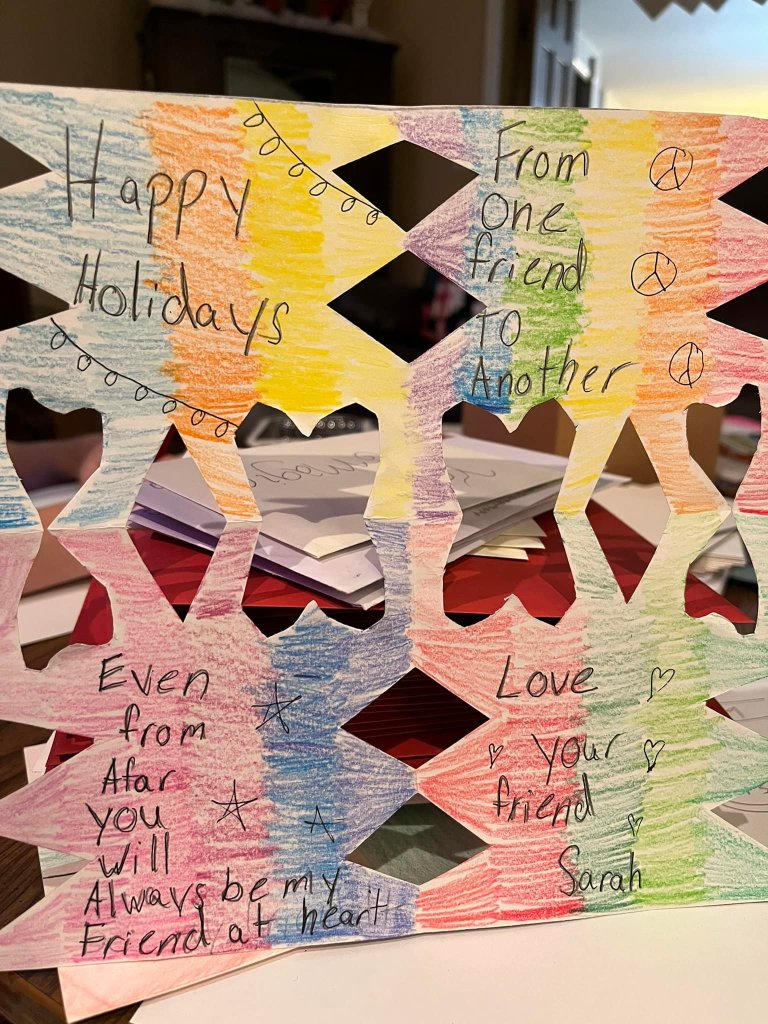 Happy
Holidays
From
one
friend
To
Another
Even
from
Afar
you
will
Always be my
Friend at heart
Love
your
friend
Sarah